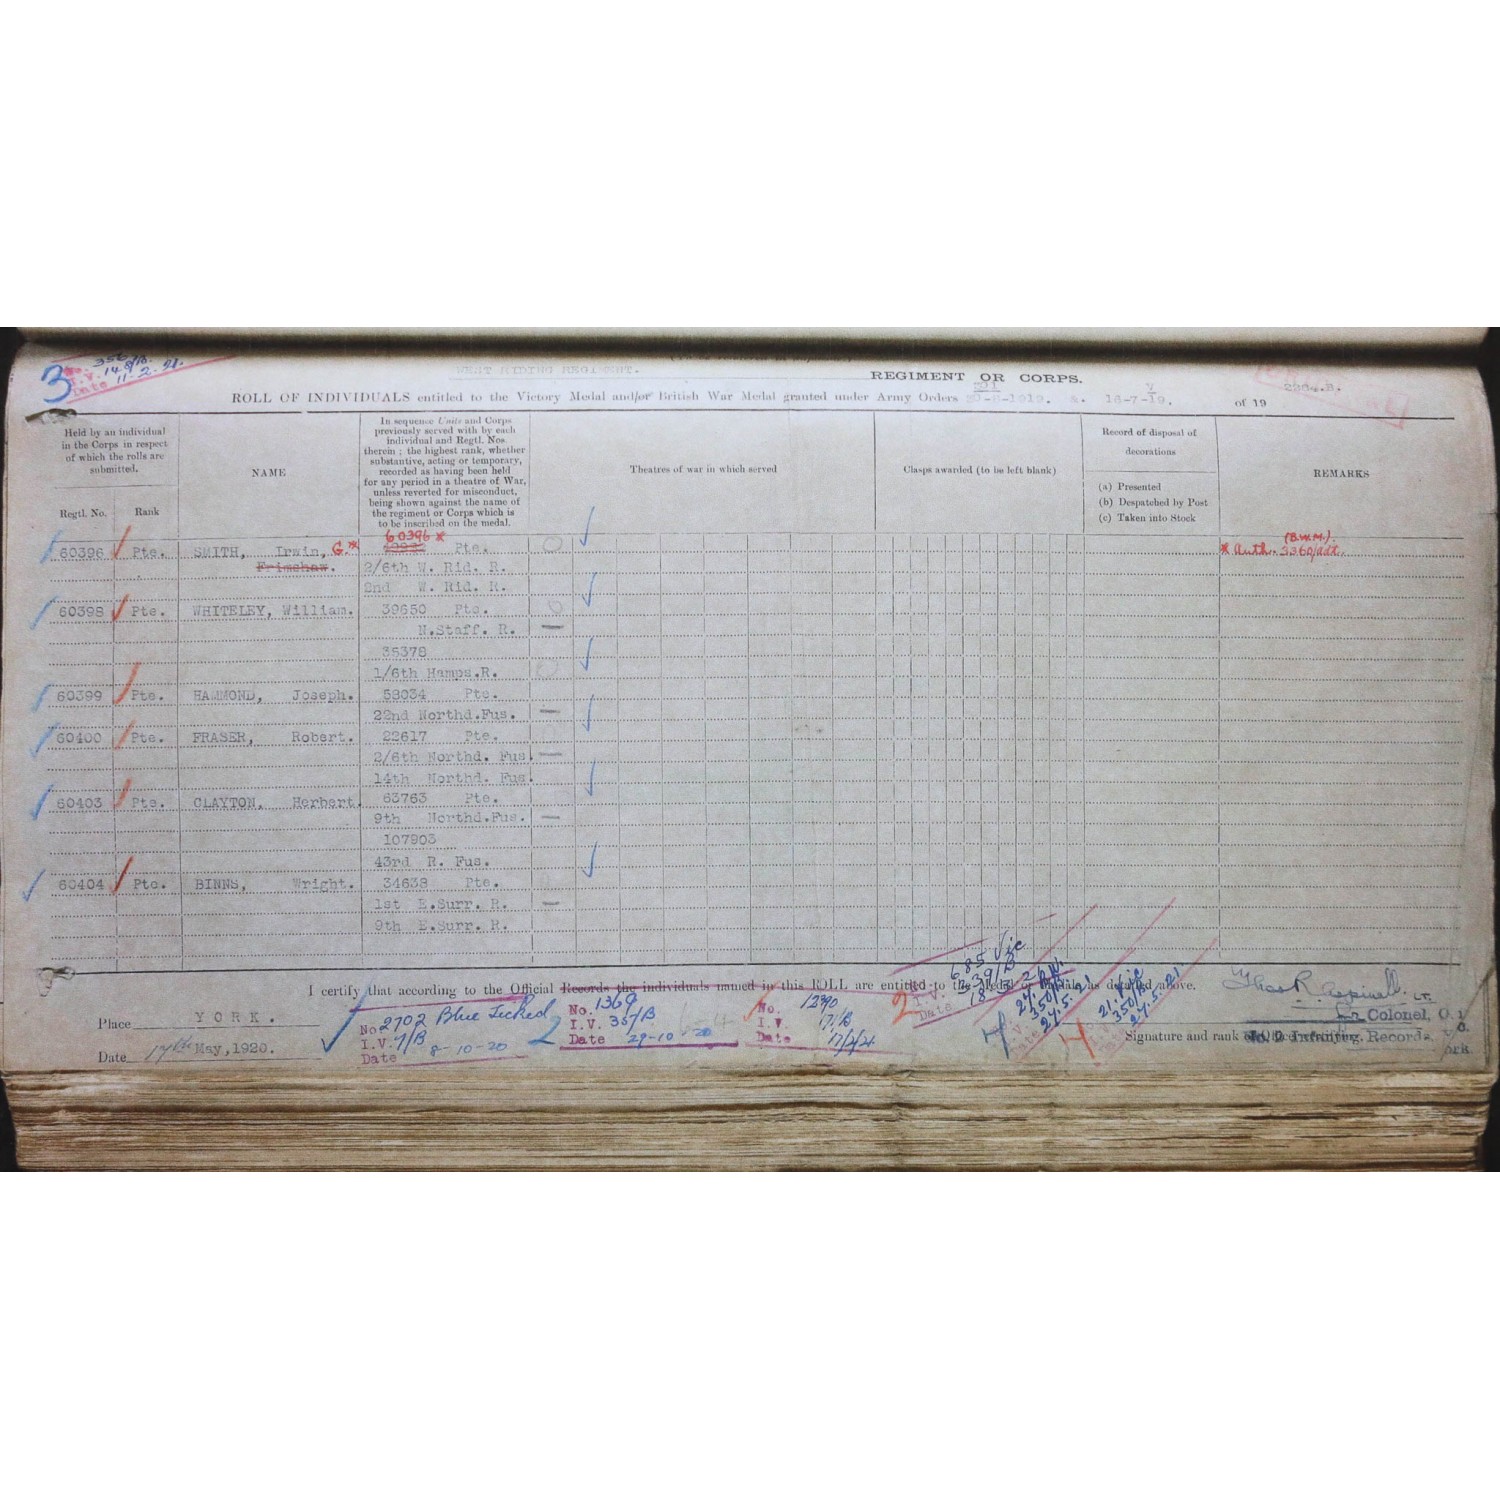 3
No. 3567/B.
I.V. 148/B.
Date 11-2-21.
WEST RIDING REGIMENT. REGIMENT OR CORPS. 2284.B.
ROLL OF INDIVIDUALS entitled to the Victory Medal and/or British War Medal granted under Army Orders & 16-7-19. of 19
Held by an individual in the Corps in respect of which the rolls are submitted.
Regtl. No.
Rank
NAME
In sequence Units and Corps
previously served with by each
individual and Regtl. Nos.
therein ; the highest rank, whether
substantive, acting or temporary,
recorded as having been held
for any period in a theatre of War,
unless reverted for misconduct,
being shown against the name of
the regiment or Corps which is
to be inscribed on the medal.
Theatres of war in which served
Clasps awarded (to be left blank)
Record of disposal of
decorations
(a) Presented
(b) Despatched by Post
(c) Taken into Stock
REMARKS
60396 *
60396 Pte. SMITH, Irwin, G.* Pte. (B.W.M).
* Auth. 3360/adt.
Frimshaw. 2/6th W. Rid. R.
2nd W. Rid. R.
60398 Pte. WHITELEY, William. 39650 Pte.
N.Staff. R. —
35378
1/6th Hamps.R.
60399 Pte. HAMMOND, Joseph. 58034 Pte.
22nd Northd.Fus. —
60400 Pte. FRASER, Robert. 22617 Pte.
2/6th Northd. Fus. —
14th Northd. Fus.
60403 Pte. CLAYTON, Herbert. 63763 Pte.
9th Northd.Fus. —
107903
43rd R. Fus.
60404 Pte. BINNS, Wright. 34638 Pte.
1st E.Surr. R. —
9th E.Surr. R.
I certify that according to the Official Records the individuals named in this ROLL are entitled to the Medal or Medals as detailed above.
Place YORK.
Date 17th May, 1920.
No 2702 Blue Ticked
I.V. 7/B
Date 8-10-20
2
No. 1369
I.V. 35/B
Date 29-10-20
No. 1290
I.V. 17/B
Date 17/2/21
2
685 Vic
I.V. 339/B
Date
4
350/B
27.5.21
4
21. Vic
350/B
27.5.21
Thos R Aspinall. LT.
for Colonel,
Signature and rank of Officer certifying.
No. 2 Infantry Records,